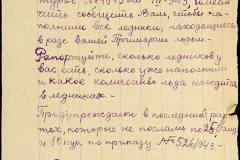 честь сообщить Вам, чтобы на-
полнили все ледники, находящиеся
в разе вашей Примэрии льдом.-
Рапортуйте, сколько ледников у
вас есть, сколько уже наполнили
и какое количество льда находится
в ледниках.-
Предупреждаетесь в последний раз
тех, которые не послали по
и 10 кур, по приказу № 526/943.-